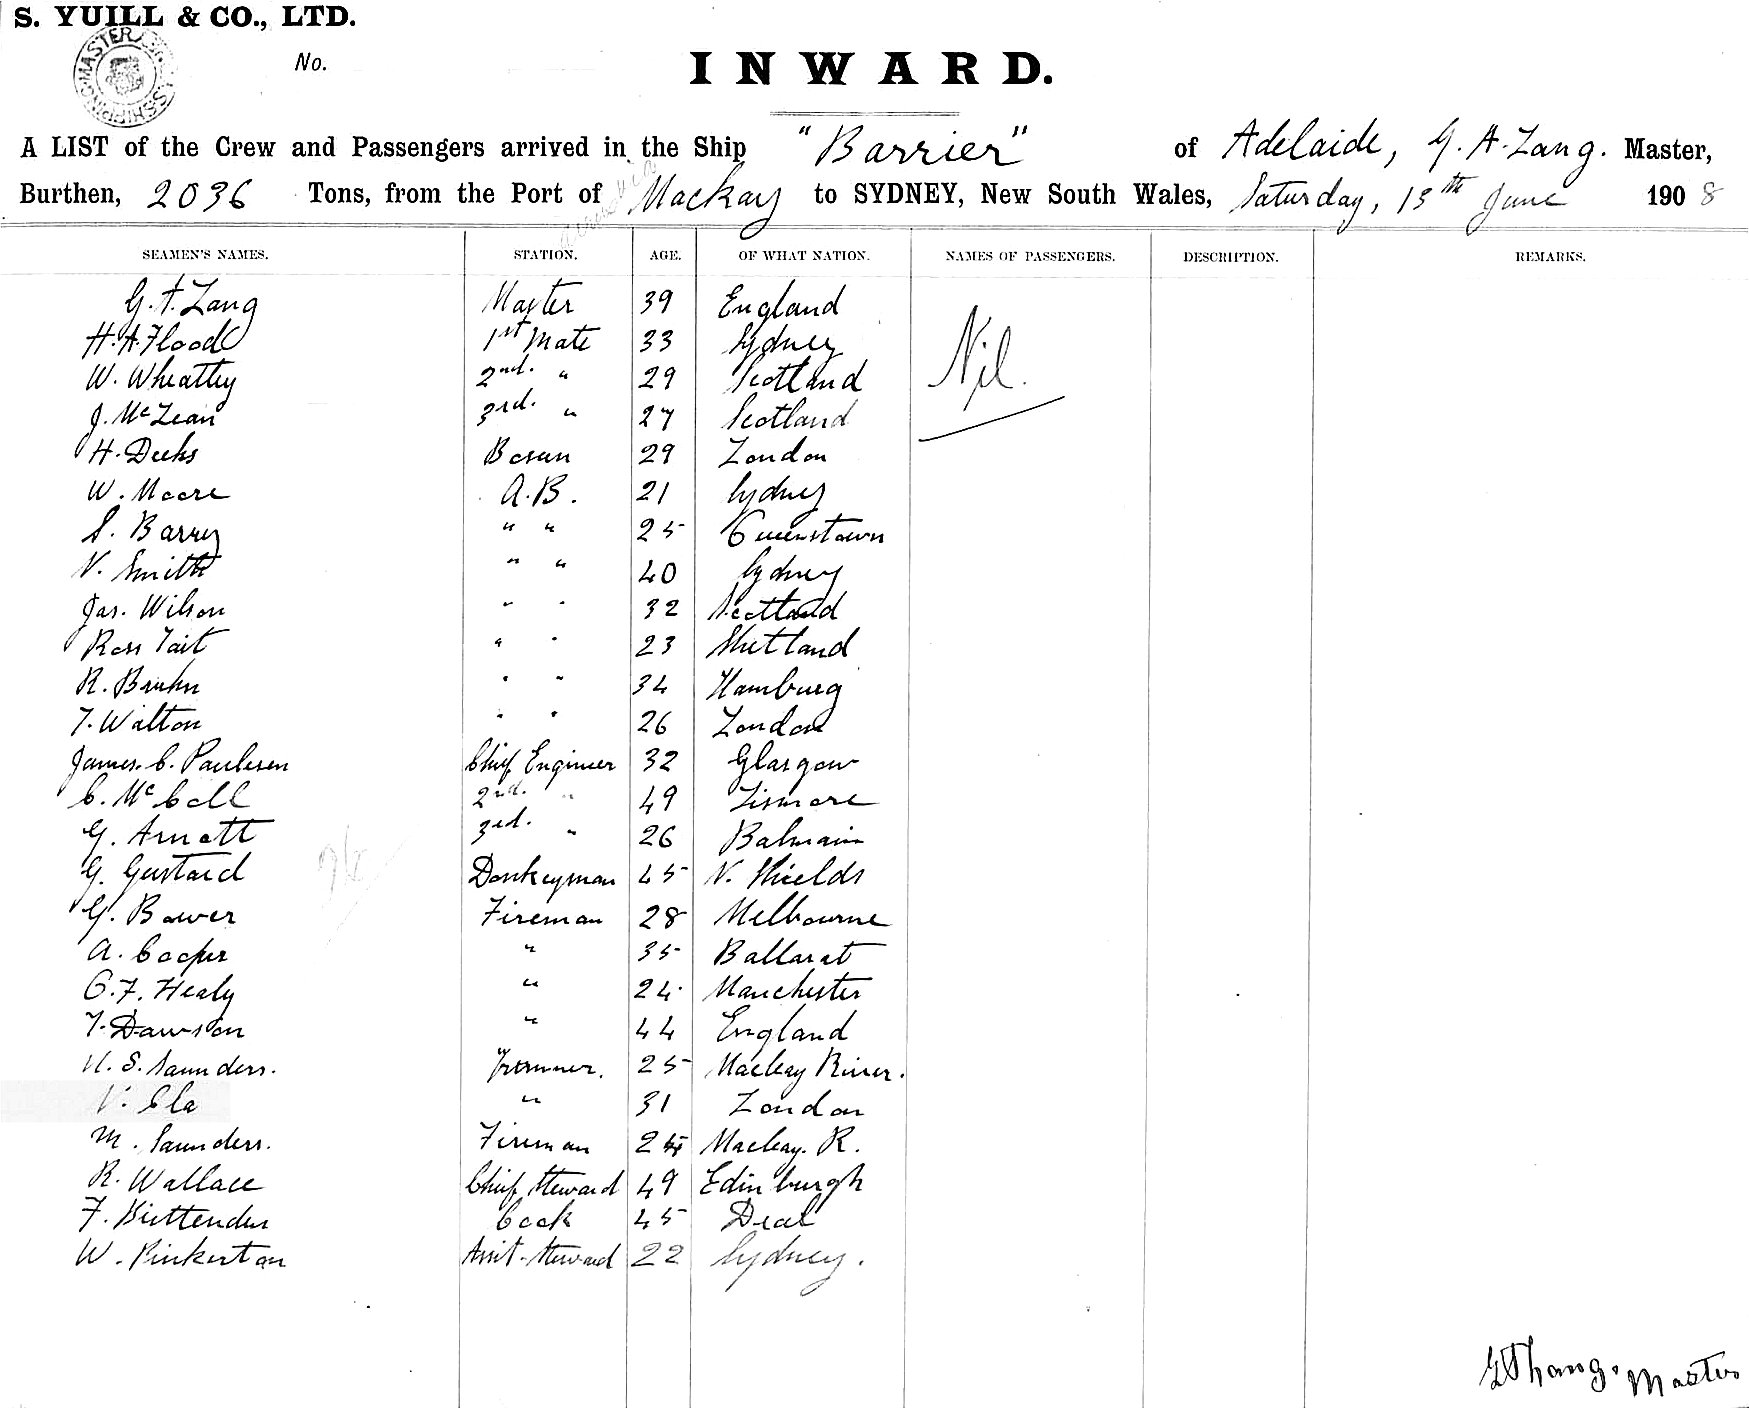 S. YUILL & CO., LTD.
No.
INWARD.
A LIST of the Crew and Passengers arrived in the Ship "Barrier" of Adelaide, G. A. Lang. Master,
Burthen, 2036 Tons, from the Port of Mackay to SYDNEY, New South Wales, Saturday, 13th June 1908
SEAMEN'S NAMES. STATION. AGE. OF WHAT NATION. NAMES OF PASSENGERS. DESCRIPTION. REMARKS.
G. A. Lang Master 39 England
H. A. Flood 1st Mate 33 Sydney
W. Wheatley 2nd. " 29 Scotland Nil.
J. McLean 3rd. " 27 Scotland
H. Deeks Bosun 29 London
W. Moore A.B. 21 Sydney
S. Barry " " 25 Queenstown
N. Smith " " 40 Sydney
Jas. Wilson " " 32 Scotland
Ross Tait " " 23 Shetland
R. Bruhn " " 34 Hamburg
T. Walton " " 26 London
James. C. Paulesen Chief Engineer 32 Glasgow
C. McColl 2nd. " 49 Lismore
G. Arnott 3rd. " 26 Balmain
G. Gustard Donkeyman 45 N. Shields
G. Bower Fireman 28 Melbourne
A. Cooper " 35 Ballarat
C. F. Healy " 24 Manchester
T. Dawson " 44 England
H. S. Saunders. Trimmer. 25 Macleay River.
" 31 London
M. Saunders. Fireman 24 Macleay. R.
R. Wallace Chief Steward 49 Edinburgh
F. Cook 45 Deal
W. Pinkerton Asst. Steward 22 Sydney.
Master